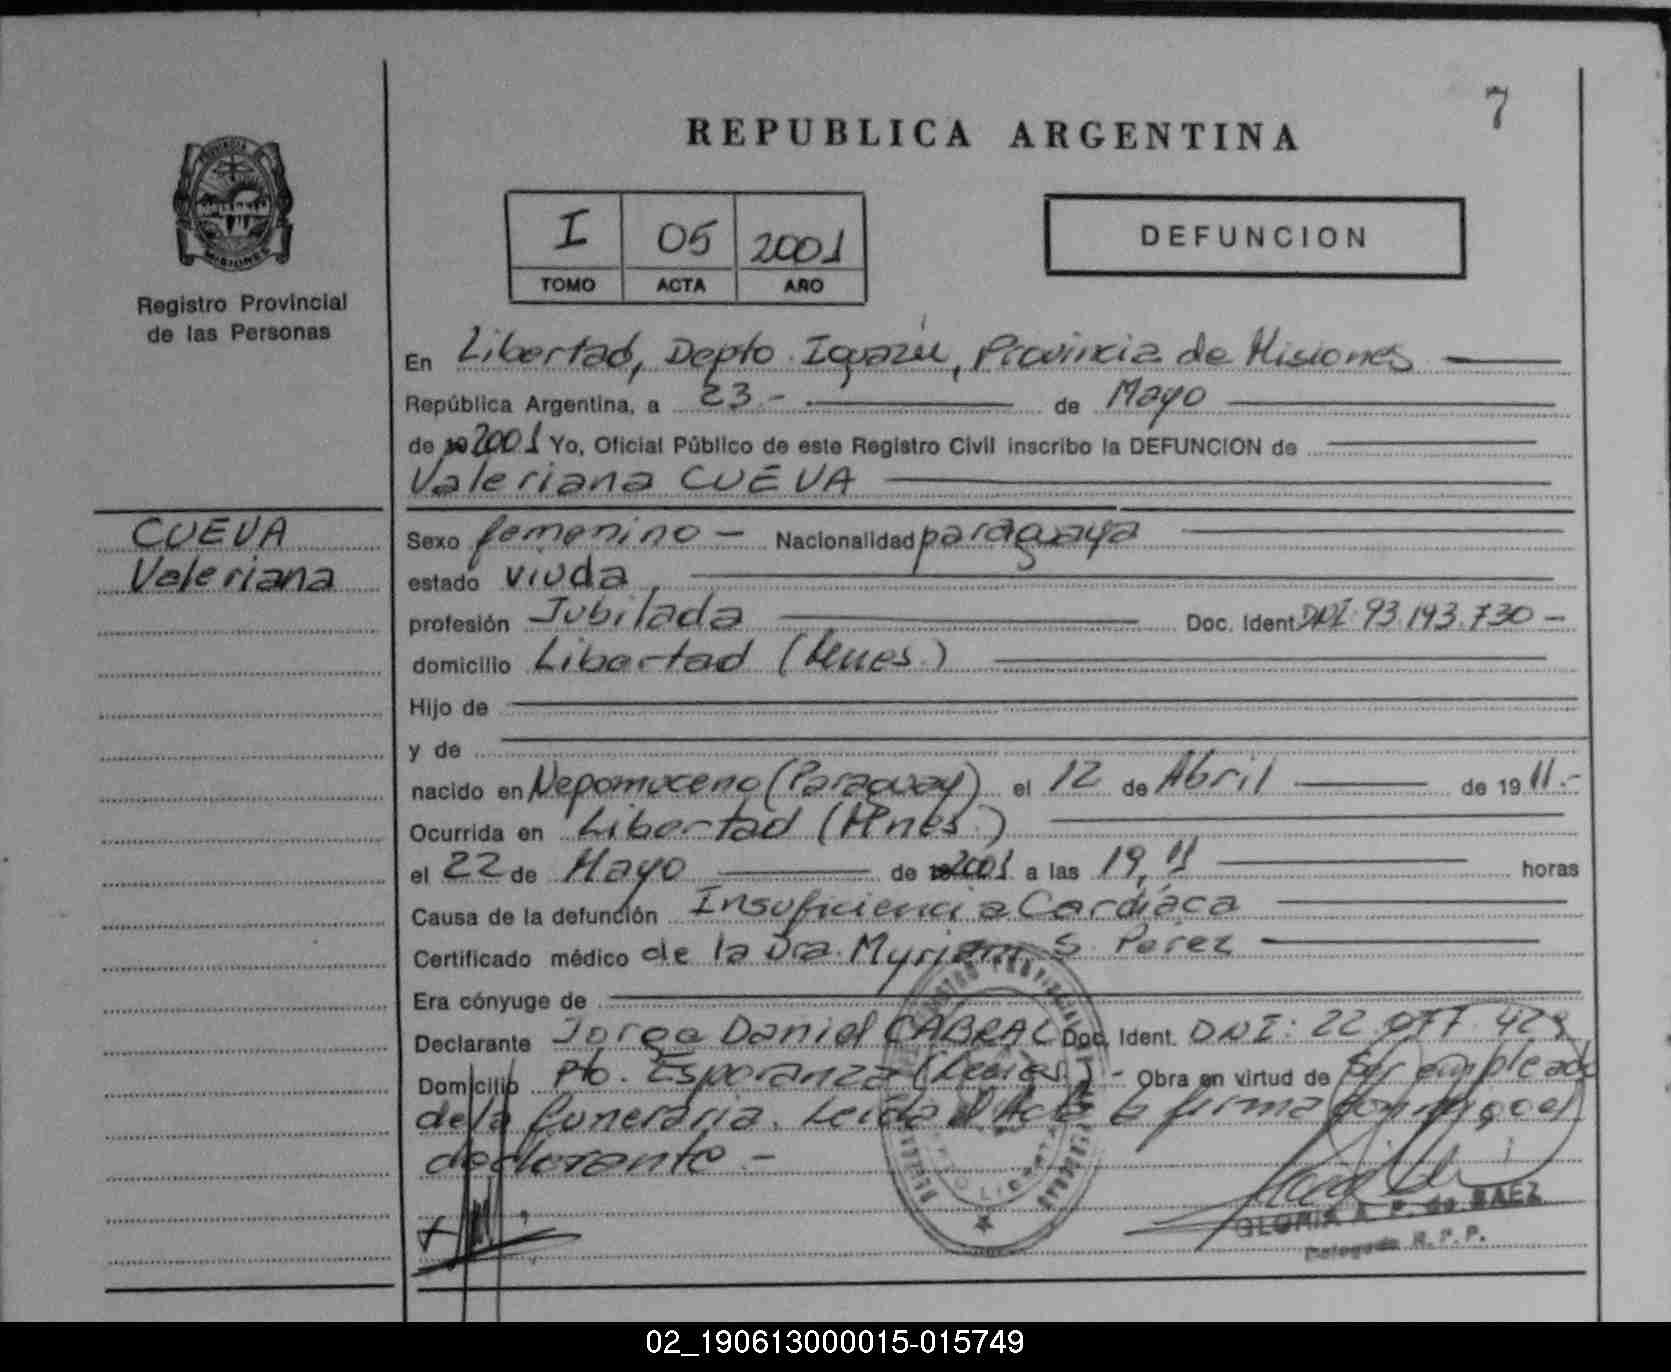 7
REPUBLICA ARGENTINA
PROVINCIA DE
MISIONES
Registro Provincial
de las Personas
I 05 2001
TOMO ACTA AÑO
DEFUNCION
En Libertad, Depto. Iguazú, Provincia de Misiones
República Argentina, a 23.- de Mayo
de 2001 Yo, Oficial Público de este Registro Civil inscribo la DEFUNCION de
Valeriana CUEVA
CUEVA
Valeriana
Sexo femenino - Nacionalidad paraguaya
estado viuda
profesión Jubilada Doc. Ident. DNI: 93.193.730 -
domicilio Libertad (Mnes.)
Hijo de
y de
nacido en Nepomuceno (Paraguay) el 12 de Abril de 19 11.-
Ocurrida en Libertad (Mnes.)
el 22 de Mayo de 2001 a las 19,11 horas
Causa de la defunción Insuficiencia Cardíaca
Certificado médico de la Dra. Myriam S. Perez
Era cónyuge de
Declarante Jorge Daniel CABRAL Doc. Ident. DNI: 22.077.423
Domicilio Pto. Esperanza (Mnes.) - Obra en virtud de Ser empleado
de la funeraria. Leida el Acta la firma conmigo el
declarante -
GLORIA A. P. de BAEZ
Delegada R. P. P.
02_190613000015-015749